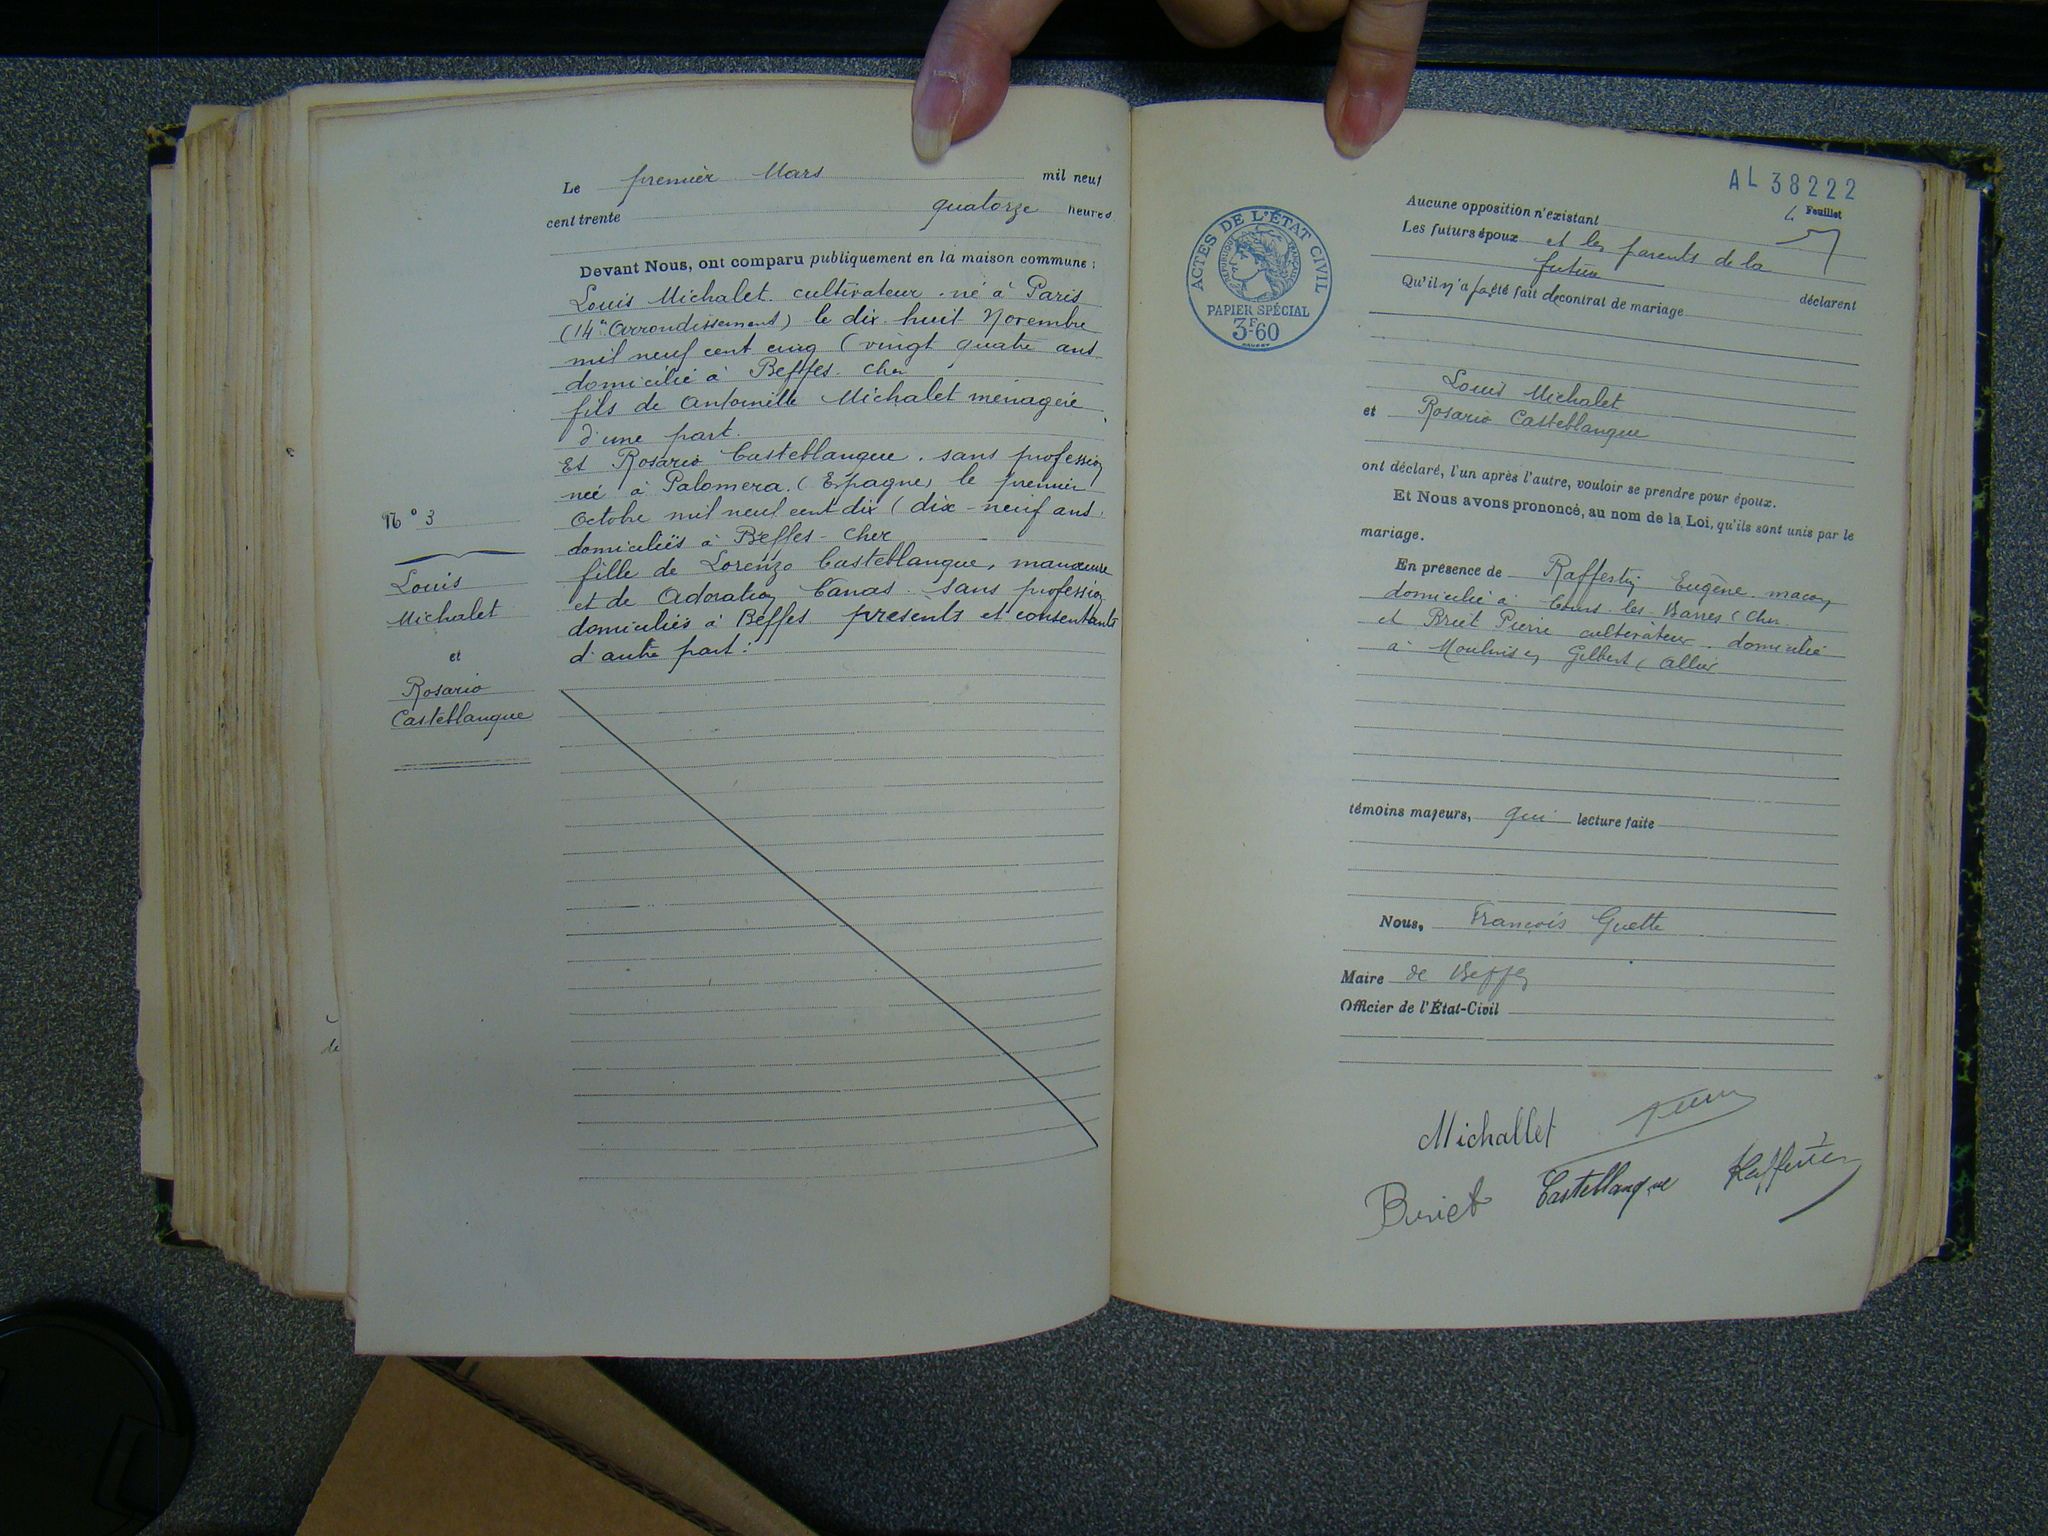 Le premier Mars mil neuf
cent trente quatorze heures
Devant Nous, ont comparu publiquement en la maison commune :
Louis Michalet cultivateur né à Paris
(14e Arrondissement) le dix huit Novembre
mil neuf cent cinq (vingt quatre ans
domicilié à Beffes Cher
fils de Antoinette Michalet ménagère
d'une part.
Et Rosario Casteblanque, sans profession
née à Palomera (Espagne) le premier
Octobre mil neuf cent dix (dix-neuf ans
domiciliés à Beffes - Cher
fille de Lorenzo Casteblanque, manœuvre
et de Adoration Canas sans profession
domiciliés à Beffes présents et consentants
d'autre part.
N° 3
Louis
Michalet
et
Rosario
Casteblanque
de
AL 38222
Feuillet
ACTES DE L'ÉTAT CIVIL
RÉPUBLIQUE FRANÇAISE
PAPIER SPÉCIAL
3F.60
Aucune opposition n'existant
Les futurs époux et les parents de la
future
déclarent
Qu'il n'a pas été fait de contrat de mariage
Louis Michalet
et Rosario Casteblanque
ont déclaré, l'un après l'autre, vouloir se prendre pour époux.
Et Nous avons prononcé, au nom de la Loi, qu'ils sont unis par le
mariage.
En présence de Raffestin Eugène maçon
domicilié à Cours-les-Barres (Cher
et Briet Pierre cultivateur domicilié
à Moulins en Gilbert (Allier
témoins majeurs, qui lecture faite
Nous, François Guette
Maire de Beffes
Officier de l'État-Civil
Michallet
Buriet Casteblanque Raffestin